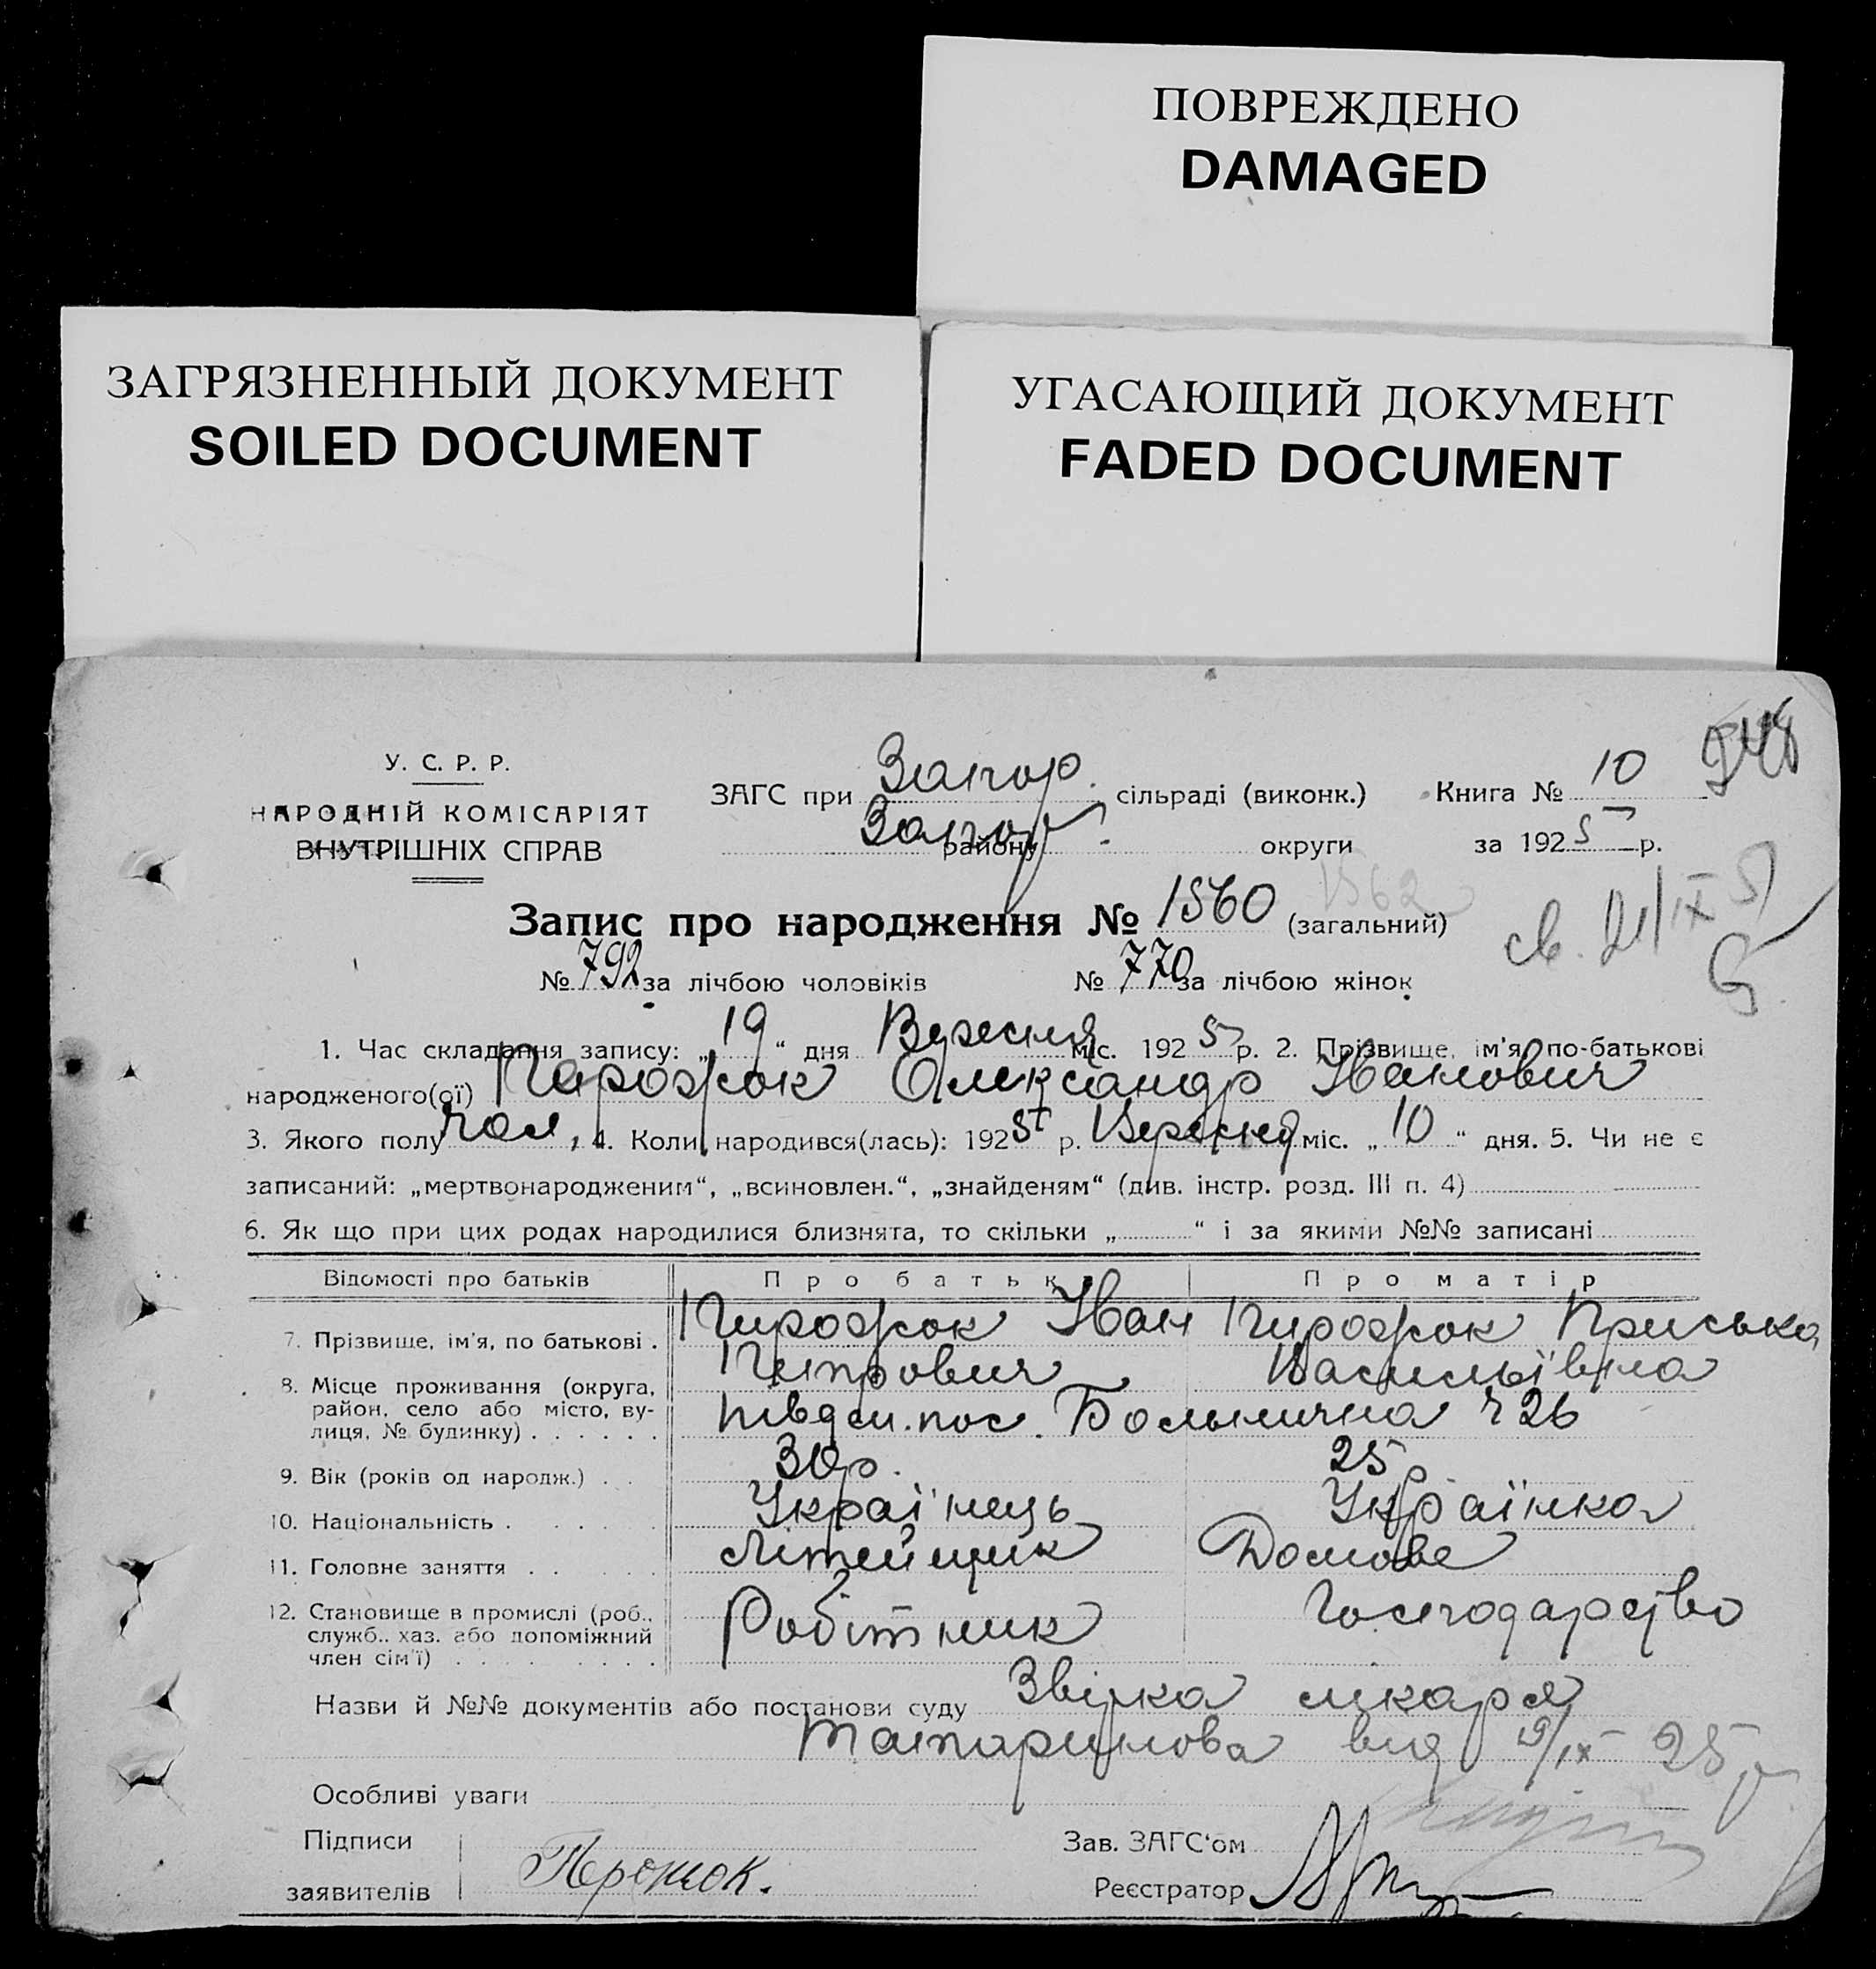 ПОВРЕЖДЕНО
DAMAGED
ЗАГРЯЗНЕННЫЙ ДОКУМЕНТ
SOILED DOCUMENT
УГАСАЮЩИЙ ДОКУМЕНТ
FADED DOCUMENT
У. С. Р. Р.
НАРОДНІЙ КОМІСАРІЯТ
ВНУТРІШНІХ СПРАВ
ЗАГС при Запор. сільраді (виконк.) Книга № 10
Запор. району округи за 1925 р.
Запис про народження № 1560 (загальний) 1562
св. 21/IX
№ 792 за лічбою чоловіків № 770 за лічбою жінок
1. Час складання запису: „19“ дня Вересня міс. 1925 р. 2. Прізвище, ім'я, по-батькові
народженого(ої) Пирожок Олександр Іванович
3. Якого полу чол, 4. Коли народився(лась): 1925 р. Вересня міс. „10“ дня. 5. Чи не є
записаний: „мертвонародженим“, „всиновлен.“, „знайденям“ (див. інстр. розд. III п. 4)
6. Як що при цих родах народилися близнята, то скільки „ “ і за якими №№ записані
Відомості про батьків Про батьк Про матір
7. Прізвище, ім'я, по батькові . Пирожок Іван Петрович Пирожок Приська Васильївна
8. Місце проживання (округа, район, село або місто, вулиця, № будинку) . . . . . . Півден. пос. Больнична ч 26
9. Вік (років од народж.) . . 30 р. 25 р.
10. Національність . . . . . Українець Українка
11. Головне заняття . . . . . Літейщик Домове
12. Становище в промислі (роб., служб., хаз. або допоміжний член сім'ї) . . . . . . . Робітник Господарство
Назви й №№ документів або постанови суду Звірка лікаря
Татаринова від 19/IX 25 р
Особливі уваги
Підписи
заявителів Пірожок.
Зав. ЗАГС'ом
Реєстратор